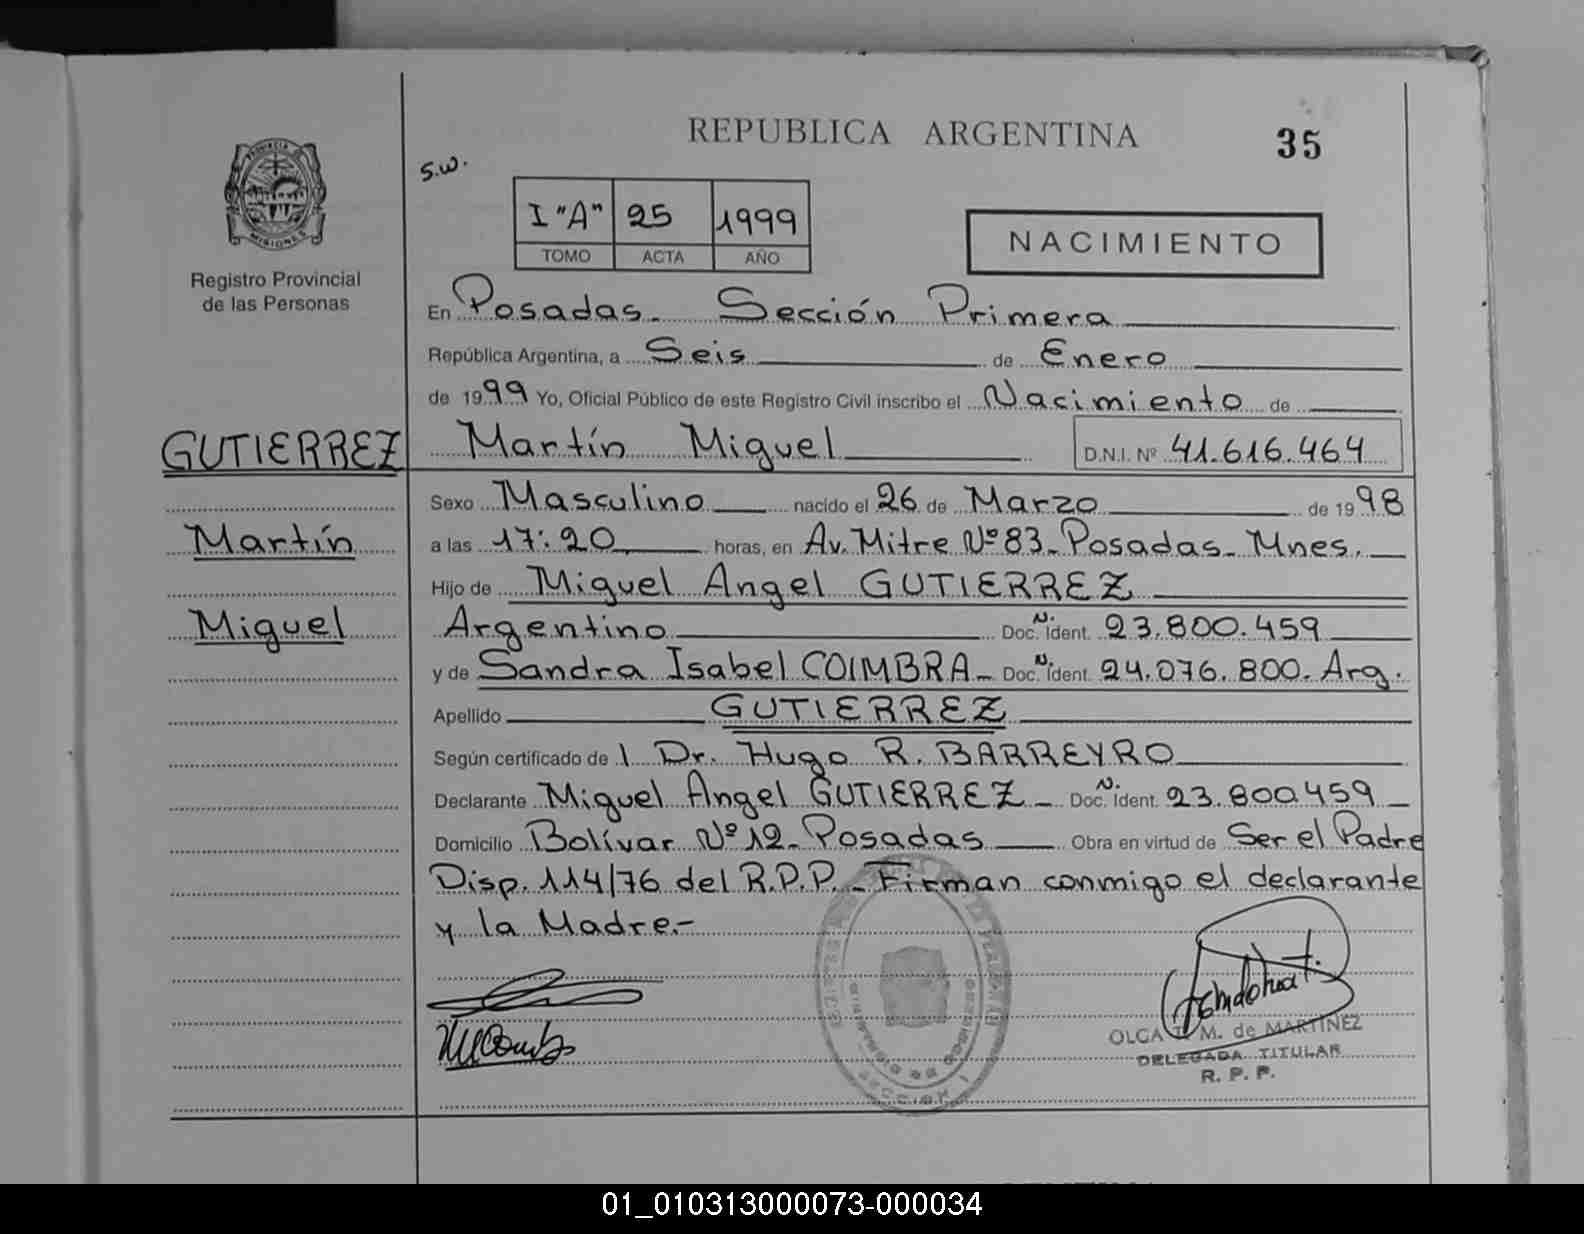 REPUBLICA ARGENTINA
35
s.w.
PROVINCIA
MISIONES
Registro Provincial
de las Personas
I "A" 25 1999
TOMO ACTA AÑO
NACIMIENTO
En Posadas. Sección Primera
República Argentina, a Seis de Enero
de 1999 Yo, Oficial Público de este Registro Civil inscribo el Nacimiento de
GUTIERREZ
Martín Miguel D.N.I. Nº 41.616.464
Sexo Masculino nacido el 26 de Marzo de 1998
Martín
a las 17:20 horas, en Av. Mitre Nº 83. Posadas. Mnes.
Hijo de Miguel Angel GUTIERREZ
Miguel
Argentino Doc. N. Ident. 23.800.459
y de Sandra Isabel COIMBRA Doc. N. Ident. 24.076.800. Arg.
Apellido GUTIERREZ
Según certificado de l Dr. Hugo R. BARREYRO
Declarante Miguel Angel GUTIERREZ Doc. N. Ident. 23.800459
Domicilio Bolívar Nº 12. Posadas Obra en virtud de Ser el Padre
Disp. 114/76 del R.P.P. Firman conmigo el declarante
y la Madre.-
OLGA M. de MARTINEZ
DELEGADA TITULAR
R. P. P.
01_010313000073-000034